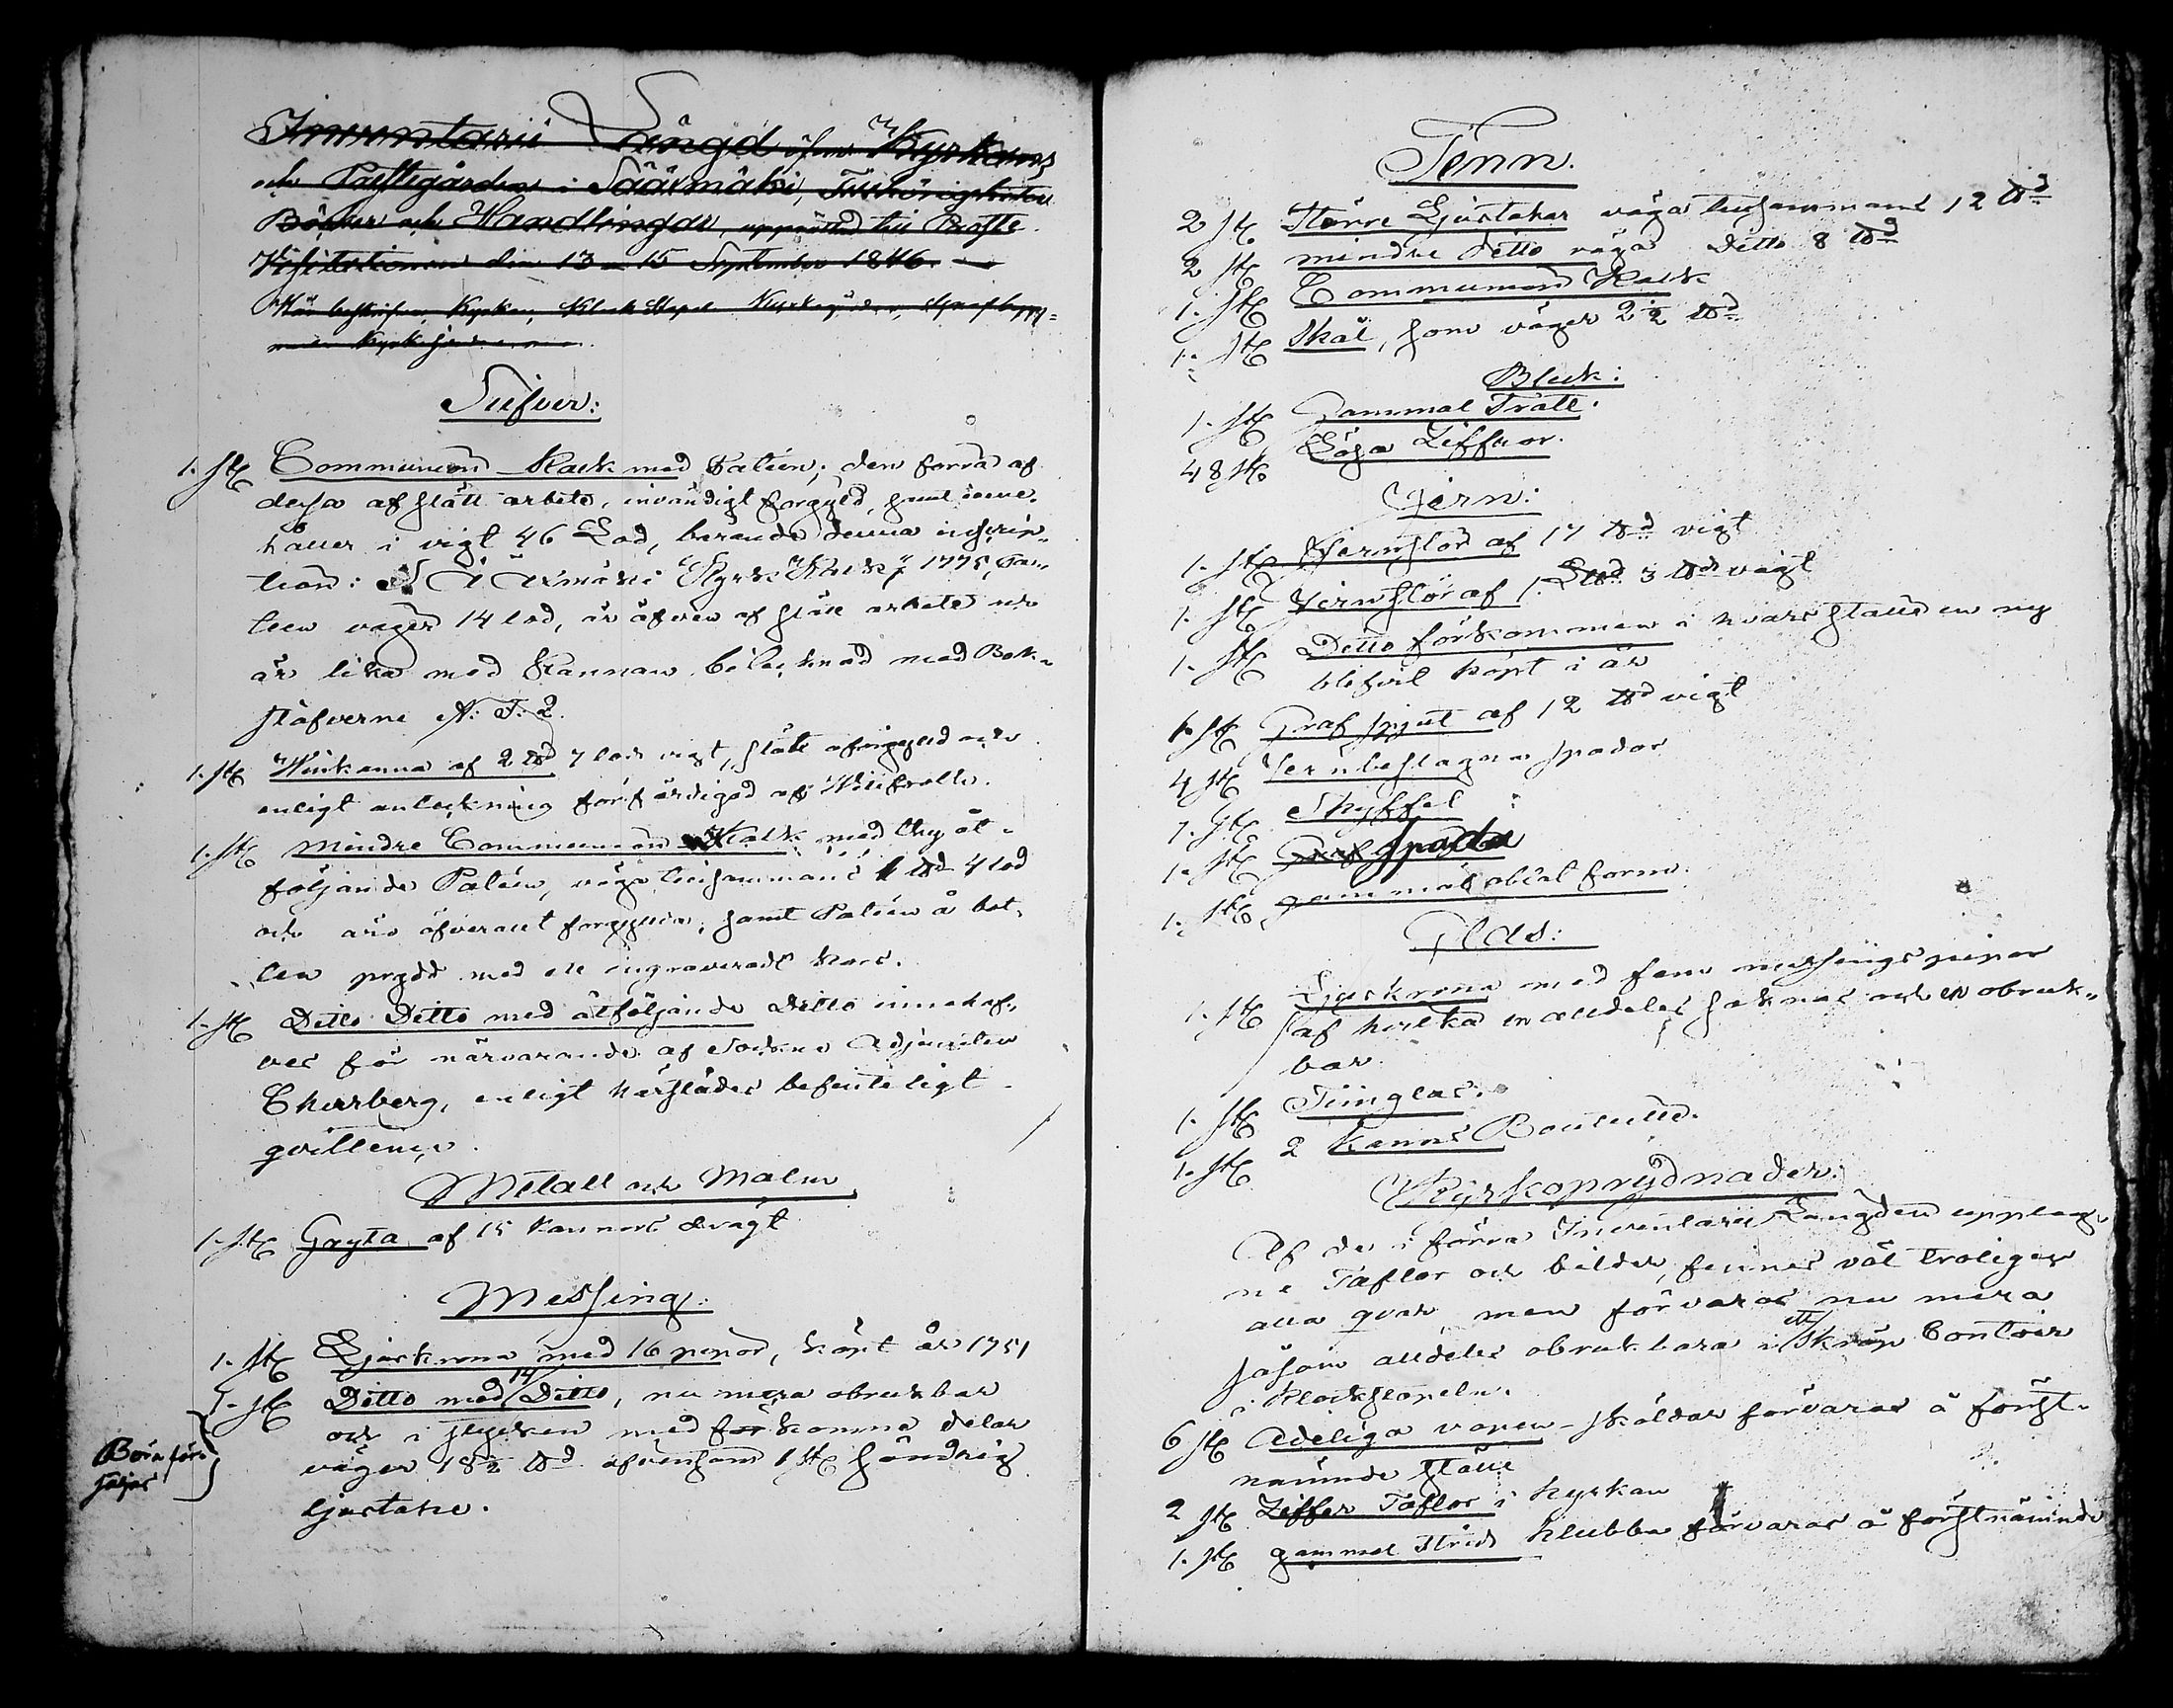 Inventarii Längd öfver Kyrkans
och Prestegården i Sääxmäki, Tillhörigheter
Böcker och Handlingar, upprättad till Prosts
Visitationen den 13 – 15 September 1846.
Här beskrifves Kyrkan, Klock Stapel Kyrkogården,
Kyrkogården
Silfver:
1. st Communion Kalk med Patèn; den förra af
dessa af slätt arbete, invändigt förgyld, samt inne-
håller i vigt 46 Lod, bärande denna inscrip-
tion: Säxmäki Kyrk Kalk 1775, Pa-
teen väger 14 lod, är äfven af slätt arbete och
är lika med Kannan betecknad med Bok-
stäfverne N: T: 2.
1. st Winkanna af 2 ℔d 7 lods vigt, slätt oförgyld och
enligt anteckning förfärdigad af
1. st mindre Communion Kalk med thy åt-
följande Patèn, väga tillsammans 1 ℔d 4 lod
och äro öfverallt förgyllda, samt Patèn å bot-
ten prydd med ett ingraveradt kors.
1. st Ditto Ditto med åtföljande Ditto innehaf-
ves för närvarande af Sockne Adjuncten
Ehrrberg, enligt härstädes befinteligt
qvittence.
Metall och Malm
1. st Gryta af 15 kannors dragt
Messing:
1. st Ljuskrona med 16 pipor, köpt år 1751
1. st Ditto med 14 Ditto, nu mera obrukbar
och i stycken med förkomna delar
väger 18½ ℔d äfvensom 1 st söndrig
ljustake.
Böra för-
säljas
Tenn.
2 st Större Ljustakar väga tillsammans 12 ℔d
2 st mindre Ditto väga Ditto 8 ℔d
1. st Communion Kalk
1. st Skål, som väger 2½ ℔d
Bleck:
1. st Gammal Tratt.
48 st Lösa Ziffror.
Jern:
1. st Jernstör af 17 ℔d vigt
1. st Jernstör af 1 L℔d 3 ℔ds vigt
1. st Ditto förkommen i hvars ställe en ny
blifvit köpt i år
1. st Graf spjut af 12 ℔d vigt
4 st Jernbeslagna spador
1. st Skyffel
1. st Graf spada
1. st gammal oblat form.
Glas:
1. st Ljuskrona med fem messings pipor
af hvilka en alldeles saknas och en obruk-
bar.
1. st Timglas.
1. st 2 kannors Bouteille.
Kyrkoprydnader.
Af de i förra Inventarii Längden upptag-
ne Taflor och bilder, finnes väl troligen
alla qvar, men förvaras nu mera
såsom alldeles obrukbara i ett Skräp Contoir
i Klockstapeln.
6 st Adeliga vapen-sköldar förvaras å först-
nämnde ställe
2 st Ziffer Taflor i kyrkan
1. st gammal Strids klubba förvaras å förstnämnde